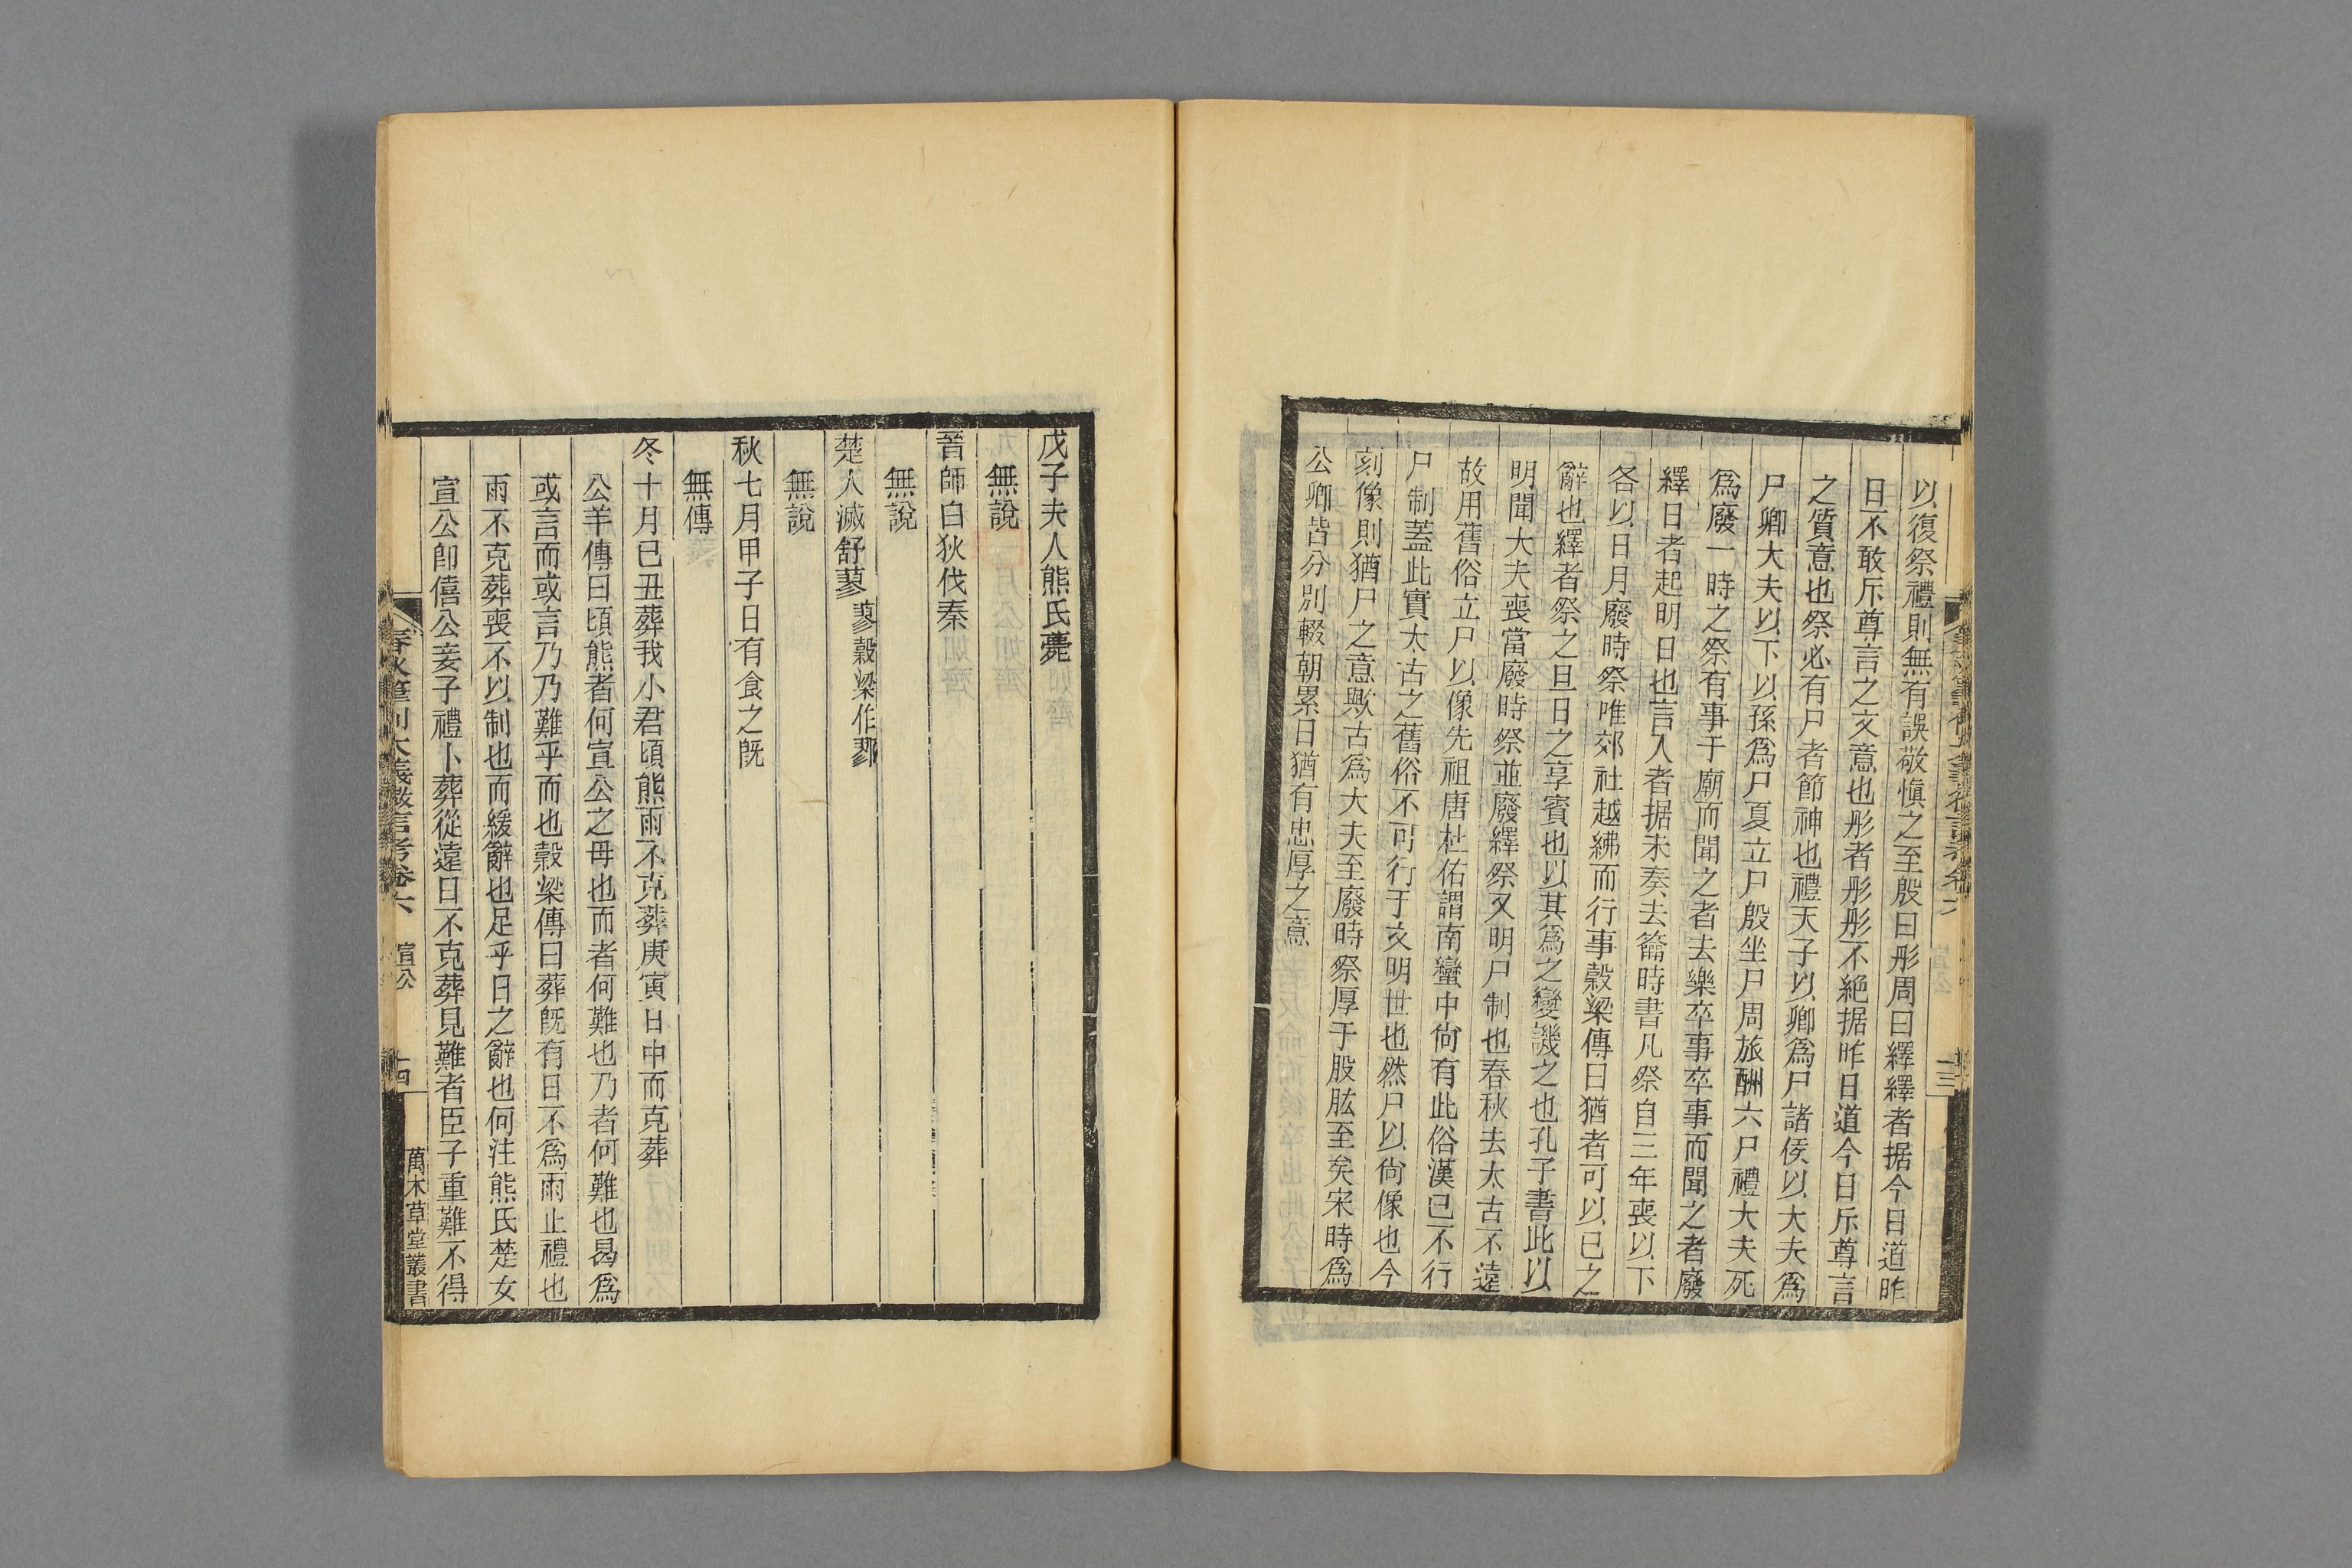 以復祭禮則無有誤敬慎之至殷曰肜周曰繹繹者据今日道昨
日不敢斥尊言之文意也肜者肜肜不絶据昨日道今日斥尊言
之質意也祭必有尸者節神也禮天子以卿爲尸諸侯以大夫爲
尸卿大夫以下以孫爲尸夏立尸殷坐尸周旅酬六尸禮大夫死
爲廢一時之祭有事于廟而聞之者去樂卒事卒事而聞之者廢
繹日者起明日也言入者据未奏去籥時書凡祭自三年喪以下
各以日月廢時祭唯郊社越紼而行事穀梁傳曰猶者可以已之
辭也繹者祭之旦日之享賓也以其爲之變譏之也孔子書此以
明聞大夫喪當廢時祭並廢繹祭又明尸制也春秋去太古不遠
故用舊俗立尸以像先祖唐杜佑謂南蠻中尚有此俗漢已不行
尸制蓋此實太古之舊俗不可行于文明世也然尸以尚像也今
刻像則猶尸之意歟古爲大夫至廢時祭厚于股肱至矣宋時爲
公卿皆分別輟朝累日猶有忠厚之意
戊子夫人熊氏薨
無說
晉師白狄伐秦
無說
楚人滅舒蓼蓼穀梁作鄝
無說
秋七月甲子日有食之既
無傳
冬十月已丑葬我小君頃熊雨不克葬庚寅日中而克葬
公羊傳曰頃熊者何宣公之母也而者何難也乃者何難也曷爲
或言而或言乃乃難乎而也穀梁傳曰葬既有日不爲雨止禮也
雨不克葬喪不以制也而緩辭也足乎日之辭也何注熊氏楚女
宣公卽僖公妾子禮卜葬從遠日不克葬見難者臣子重難不得
春秋筆削大義微言考卷六 宣公 十四 萬木草堂叢書